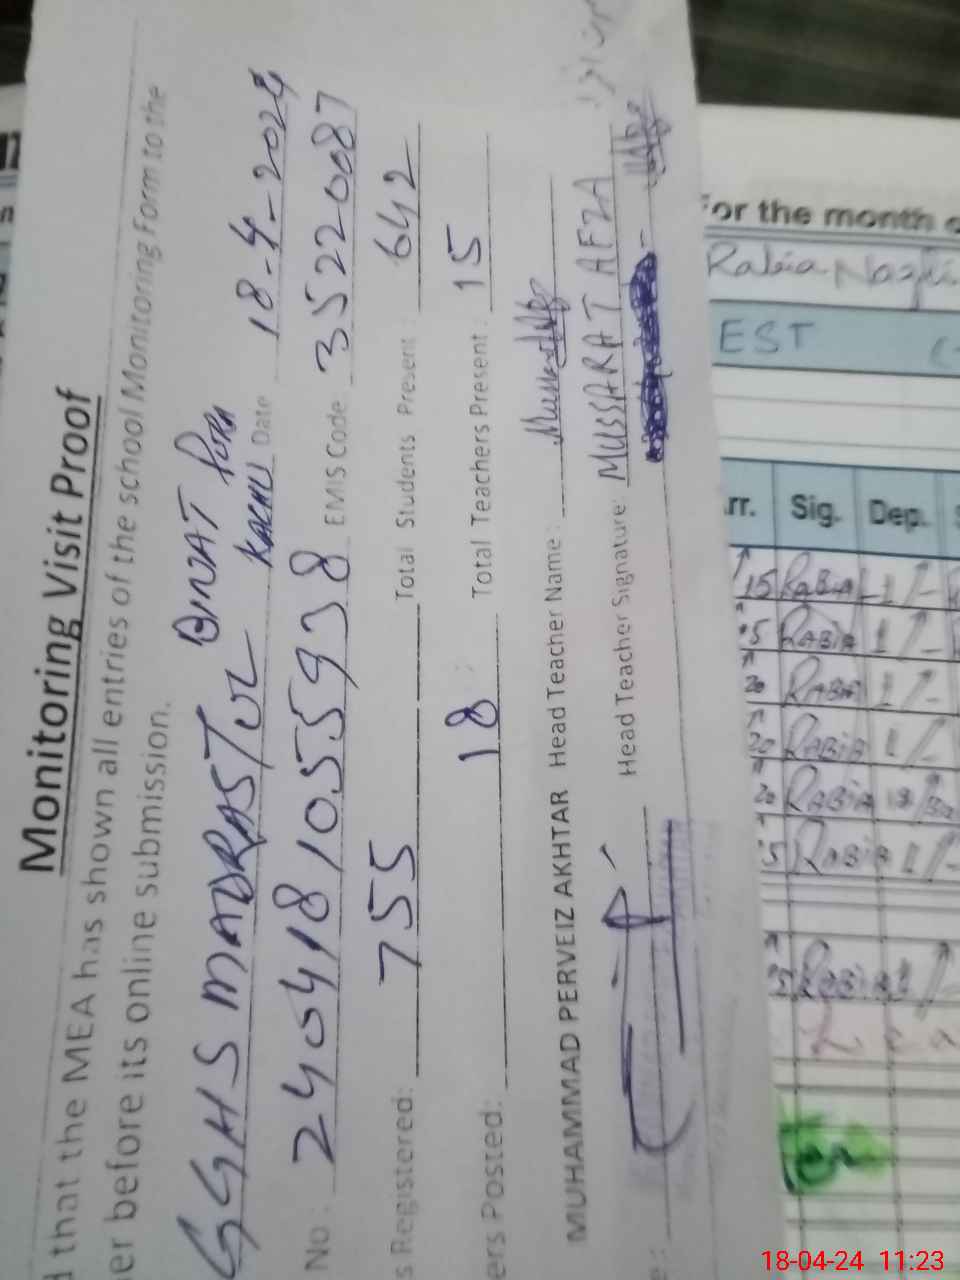 Monitoring Visit Proof
that the MEA has shown all entries of the school Monitoring Form to the
er before its online submission.
GGHS MADRASTUL BINAT Pura KACHU Date 18-4-2024
No: 2404181055938 EMIS Code 35220087
s Registered: 755 Total Students Present: 642
ers Posted: 18 Total Teachers Present: 15
MUHAMMAD PERVEIZ AKHTAR Head Teacher Name:
Head Teacher Signature: MUSSARAT AFZA
For the month
Rabia
EST
rr. Sig. Dep.
15 RABIA 1/-
15 RABIA 1/-
20 RABIA 1/-
20 RABIA 1/-
20 RABIA
15 RABIA 1/-
RABIA
18-04-24 11:23